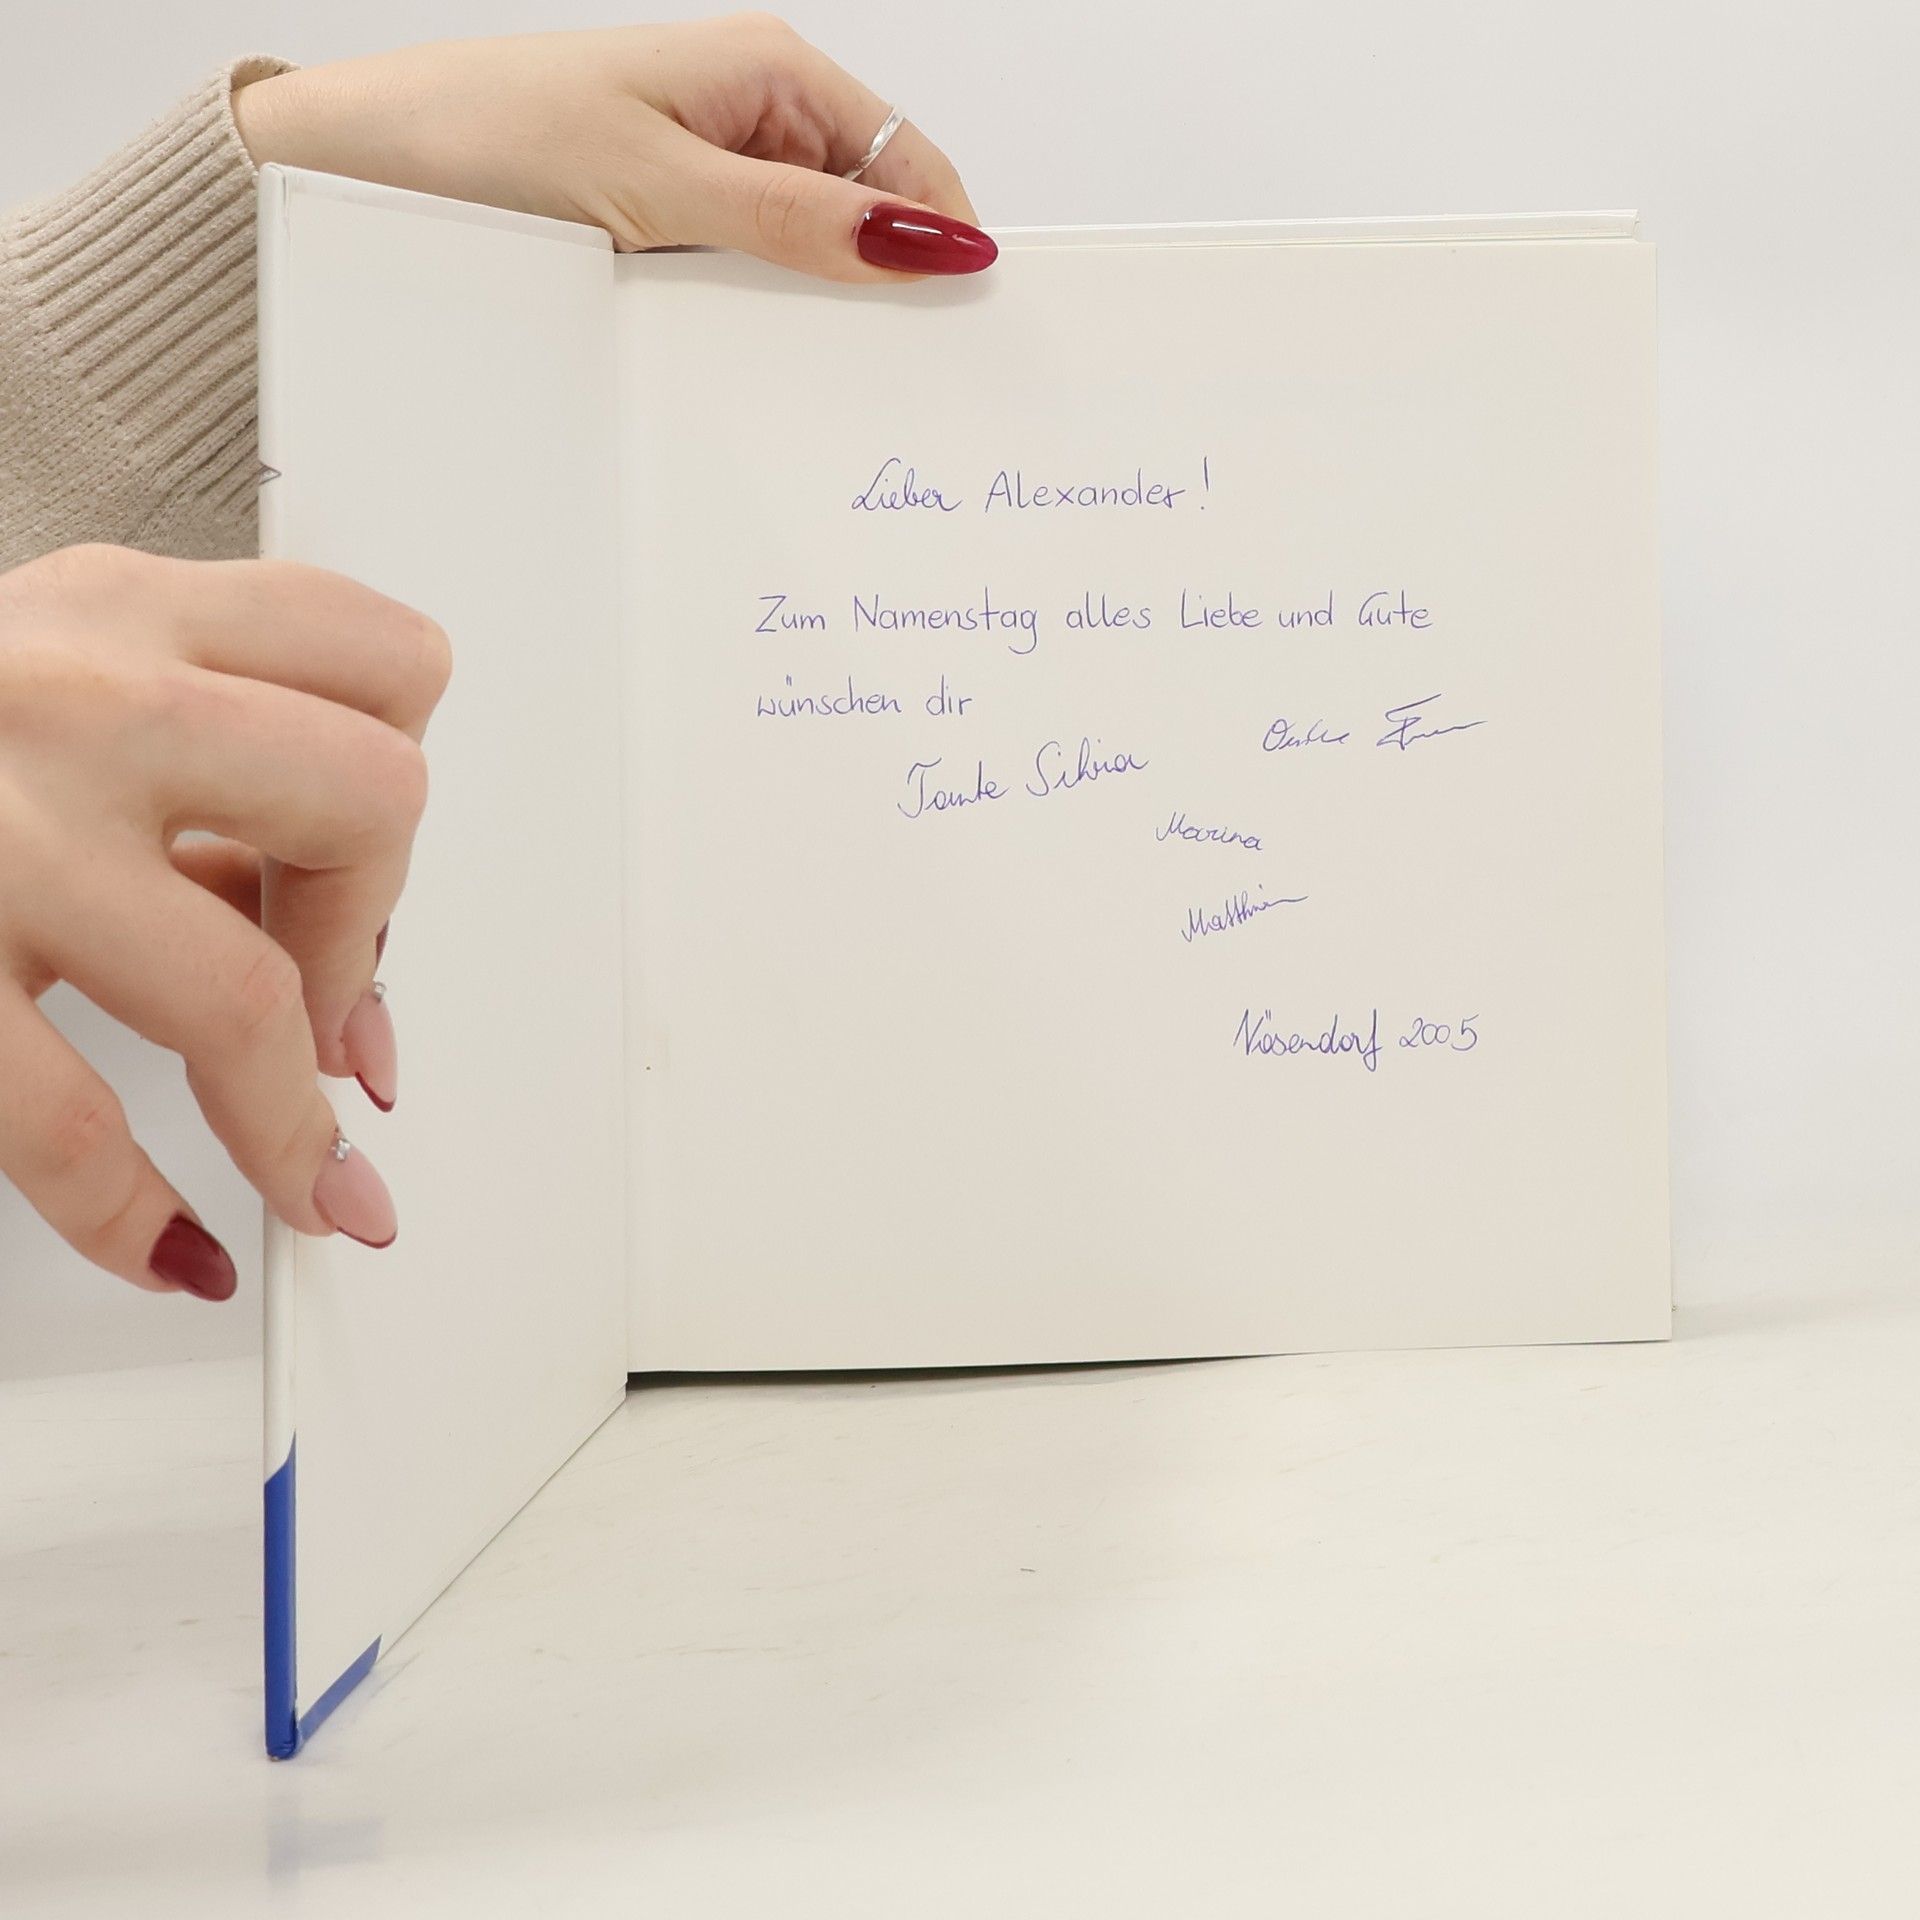 Lieber Alexander!
Zum Namenstag alles Liebe und Gute
wünschen dir
Onkel
Tante Silvia
Marina
Matthias
Vösendorf 2005